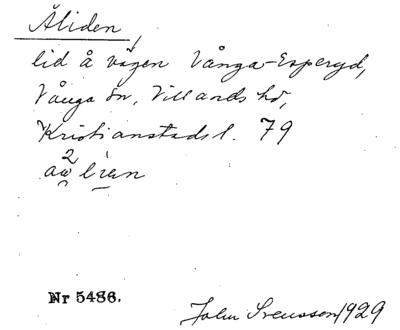 Åliden,
lid å vägen Vånga-Esperyd,
Vånga sn, Villands hd,
Kristianstads l. 79
Nr 5486.
John Svensson 1929